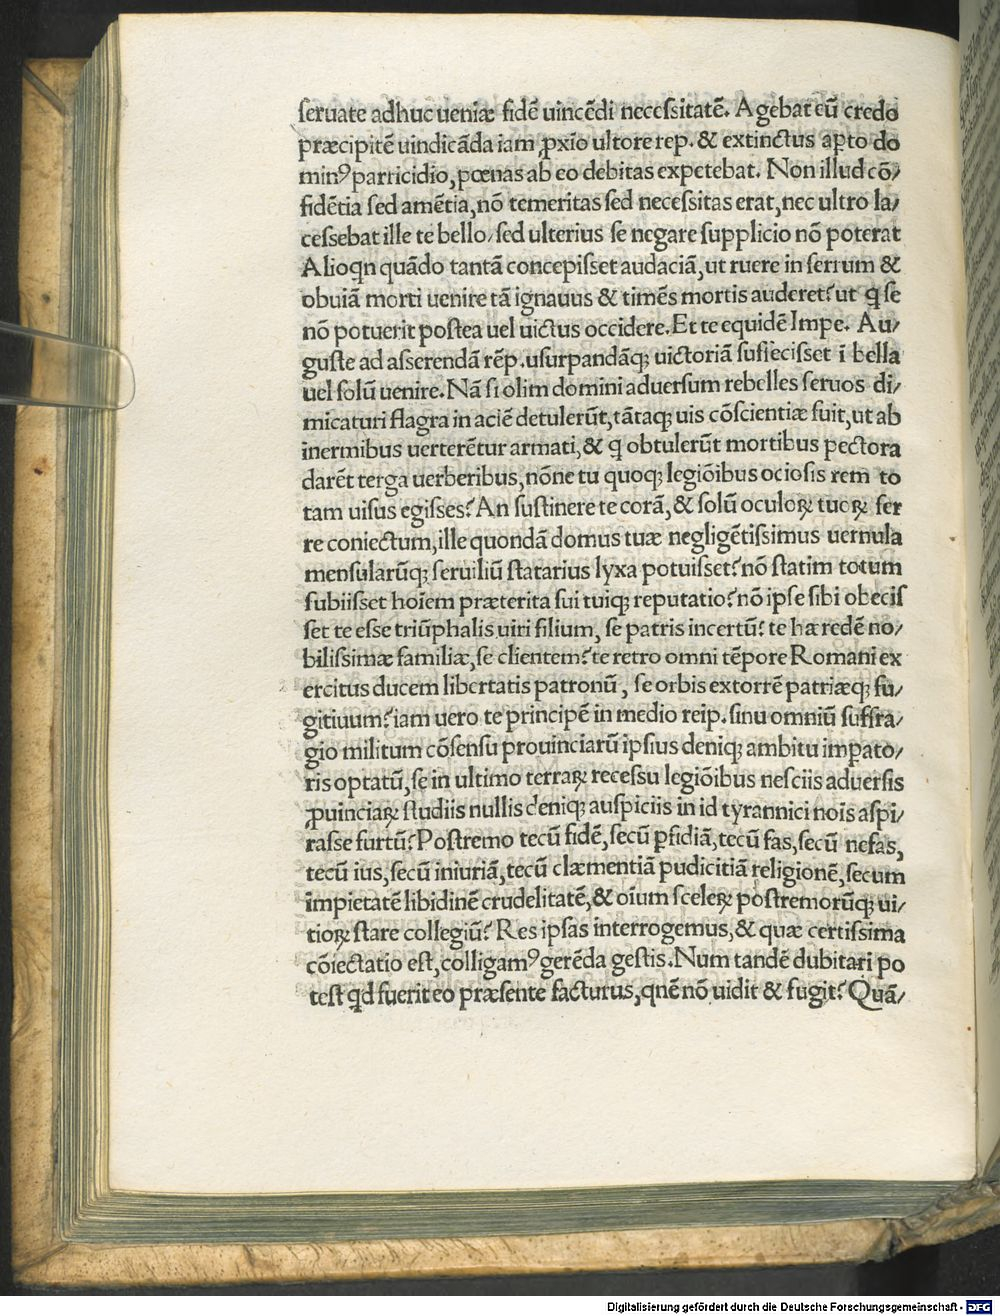 seruate adhuc ueniæ fidē uincēdi necessitatē. Agebat eū credo
præcipitē uindicāda iam ꝓxīo ultore rep. & extinctus apto do
minꝰ parricidio, pœnas ab eo debitas expetebat. Non illud cō/
fidētia sed amētia, nō temeritas sed necessitas erat, nec ultro la/
cessebat ille te bello, sed ulterius se negare supplicio nō poterat
Alioqn quādo tantā concepisset audaciā, ut ruere in ferrum &
obuiā morti uenire tā ignauus & timēs mortis auderet? ut q se
nō potuerit postea uel uictus occidere. Et te equidē Impe. Au/
guste ad asserendā rēp. usurpandāꝗ uictoriā suffecisset ī bella
uel solū uenire. Nā si olim domini aduersum rebelles seruos di/
micaturi flagra in aciē detulerūt, tātaꝗ uis cōscientiæ fuit, ut ab
inermibus uerterētur armati, & q obtulerūt mortibus pectora
darēt terga uerberibus, nōne tu quoꝗ legiōibus ociosis rem to
tam uisus egisses? An sustinere te corā, & solū oculoꝝ tuoꝝ fer
re coniectum, ille quondā domus tuæ negligētissimus uernula
mensularūꝗ seruiliū statarius lyxa potuisset? nō statim totum
subiisset hoīem præterita sui tuiꝗ reputatio? nō ipse sibi obecis
set te esse triūphalis uiri filium, se patris incertū? te hæredē no/
bilissimæ familiæ, se clientem? te retro omni tēpore Romani ex
ercitus ducem libertatis patronū, se orbis extorrē patriæꝗ fu/
gitiuum? iam uero te principē in medio reip. sinu omniū suffra/
gio militum cōsensu prouinciarū ipsius deniꝗ ambitu impato/
ris optatū, se in ultimo terraꝝ recessu legiōibus nesciis aduersis
ꝓuinciaꝝ studiis nullis deniꝗ auspiciis in id tyrannici nois aspi/
rasse furtū? Postremo tecū fidē, secū pfidiā, tecū fas, secū nefas,
tecū ius, secū iniuriā, tecū clæmentiā pudicitiā religionē, secum
impietatē libidinē crudelitatē, & oīum sceleꝝ postremorūꝗ ui/
tioꝝ stare collegiū? Res ipsas interrogemus, & quæ certissima
cōiectatio est, colligamꝰ gerēda gestis. Num tandē dubitari po
test qd fuerit eo præsente facturus, qnē nō uidit & fugit? Quā/
Digitalisierung gefördert durch die Deutsche Forschungsgemeinschaft - DFG